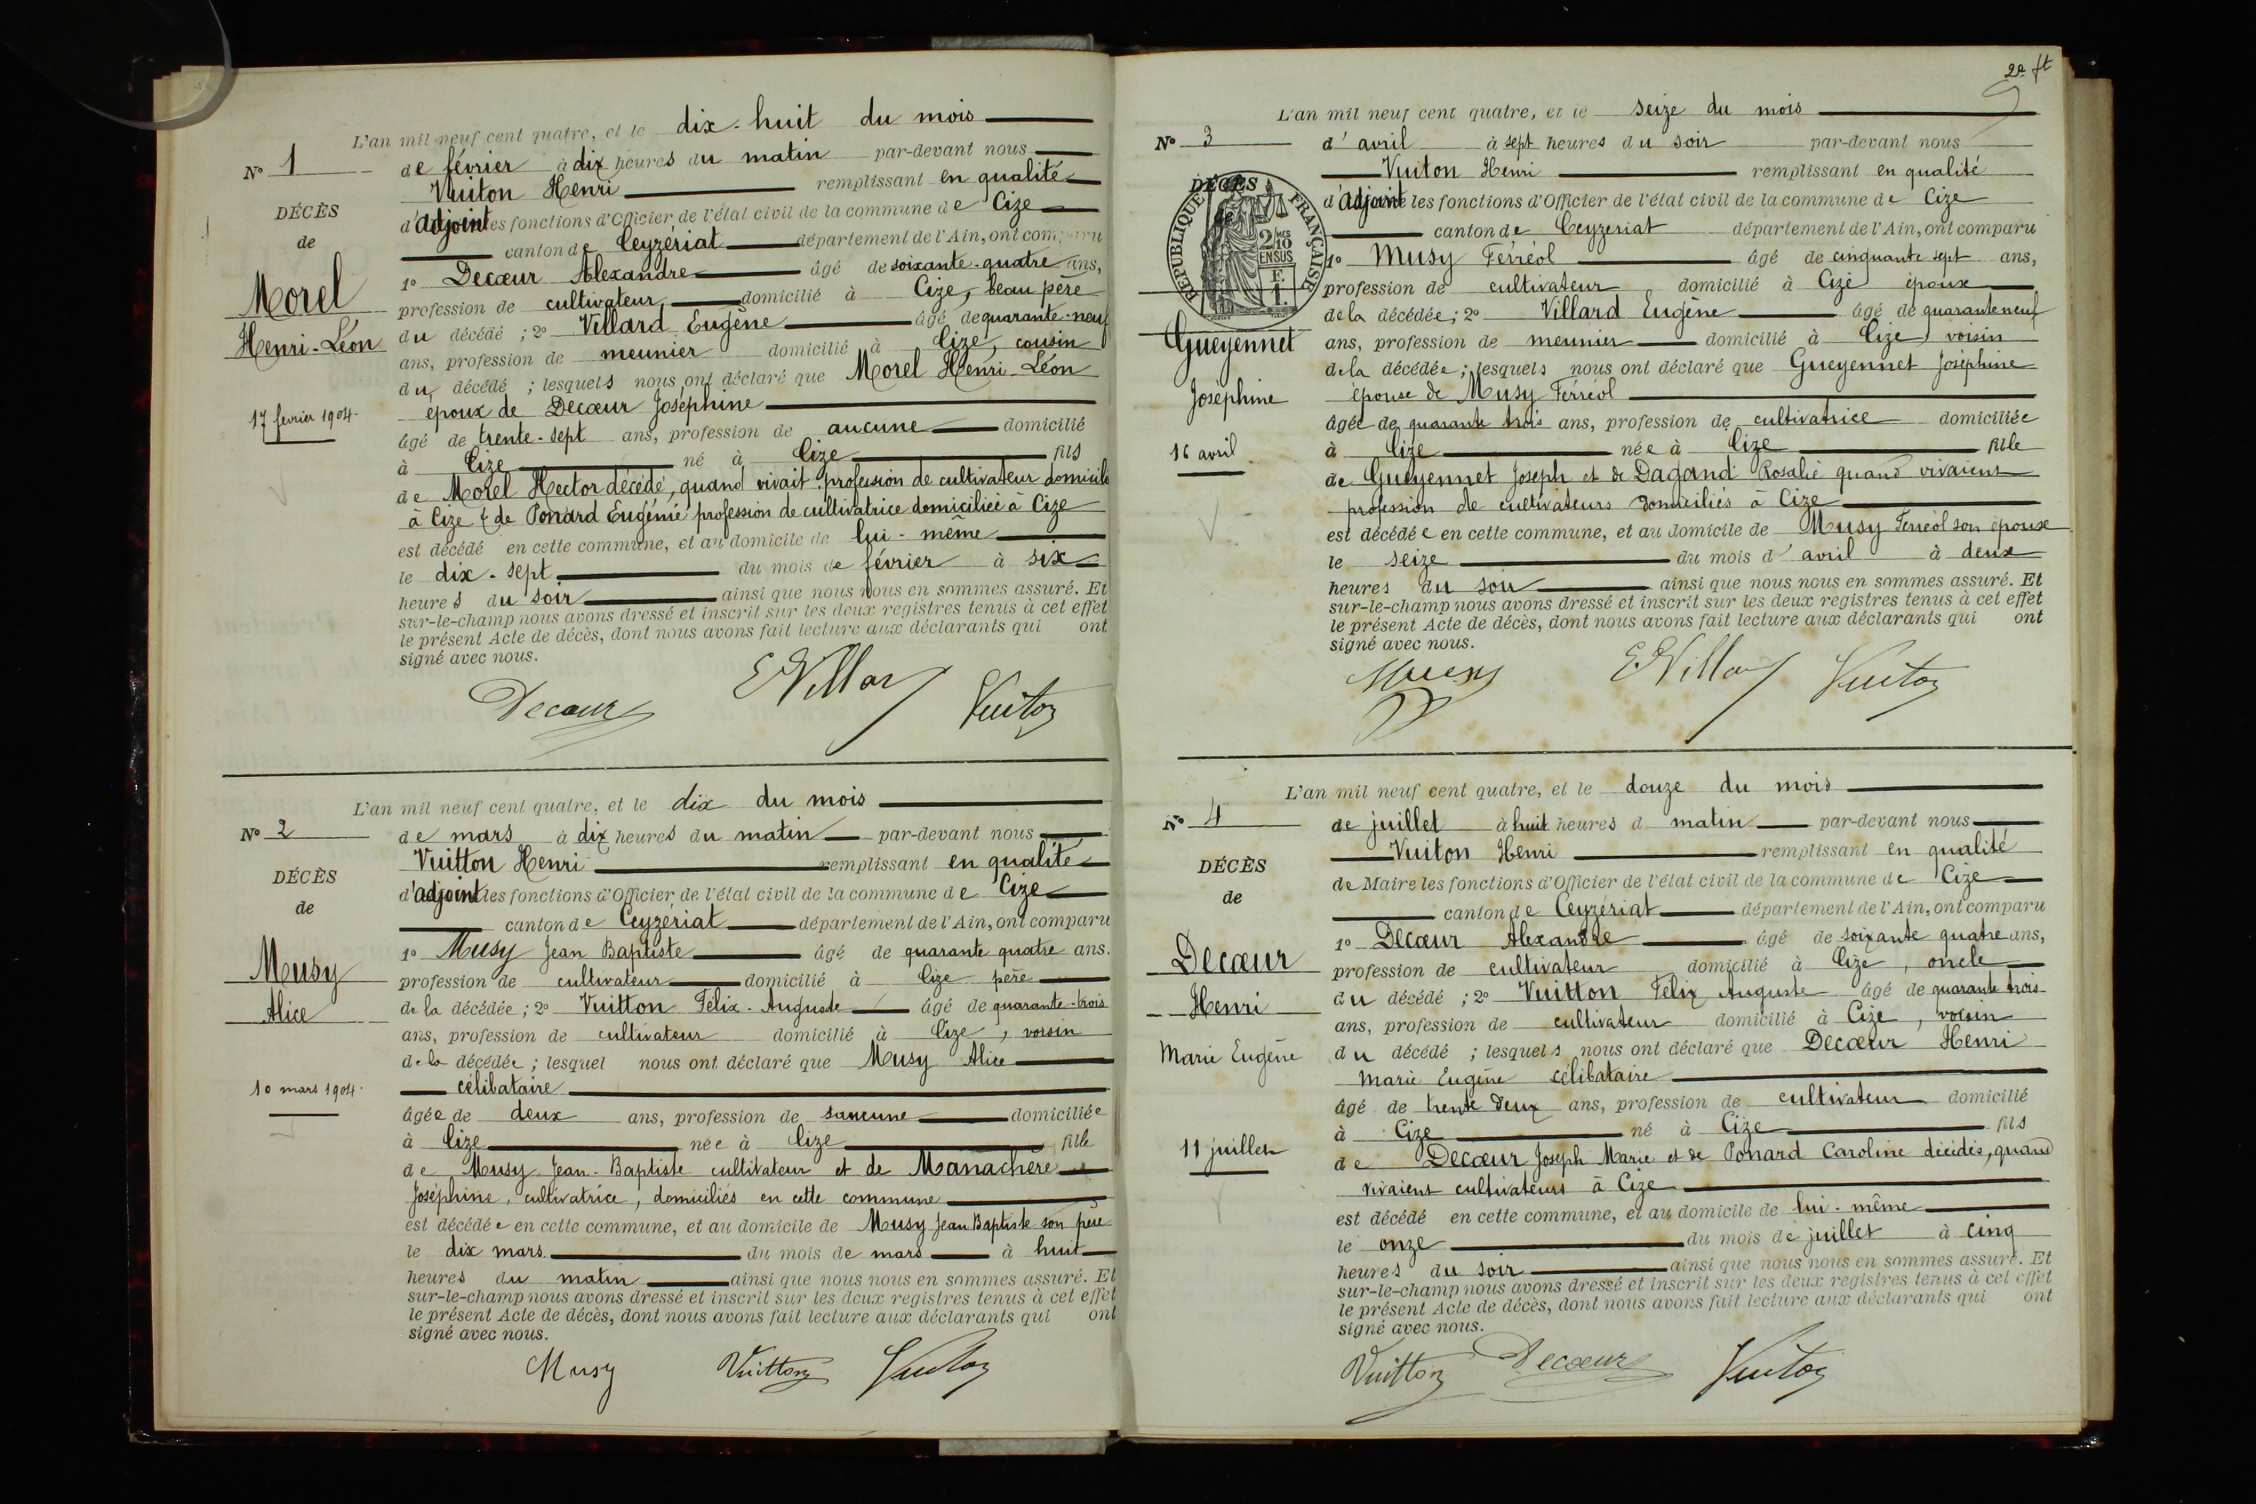 L'an mil neuf cent quatre, et le dix-huit du mois
N° 1
de février à dix heures du matin par-devant nous
Vuiton Henri remplissant en qualité
DÉCÈS
d'adjoint les fonctions d'Officier de l'état civil de la commune de Cize
de
canton de Ceyzériat département de l'Ain, ont comparu
1° Decœur Alexandre âgé de soixante-quatre ans,
Morel
profession de cultivateur domicilié à Cize, beau père
du décédé ; 2° Villard Eugène âgé de quarante-neuf
Henri-Léon
ans, profession de meunier domicilié à Cize, cousin
du décédé ; lesquels nous ont déclaré que Morel Henri-Léon
17 février 1904.
époux de Decœur Joséphine
âgé de trente-sept ans, profession de aucune domicilié
à Cize né à Cize fils
de Morel Hector décédé, quand vivait profession de cultivateur domicilié
à Cize & de Ponard Eugénie profession de cultivatrice domiciliée à Cize
est décédé en cette commune, et au domicile de lui-même
le dix-sept du mois de février à six
heures du soir ainsi que nous nous en sommes assuré. Et
sur-le-champ nous avons dressé et inscrit sur les deux registres tenus à cet effet
le présent Acte de décès, dont nous avons fait lecture aux déclarants qui ont
signé avec nous.
Decœur EVillard Vuiton
L'an mil neuf cent quatre, et le dix du mois
N° 2
de mars à dix heures du matin par-devant nous
Vuitton Henri remplissant en qualité
DÉCÈS
d'adjoint les fonctions d'Officier de l'état civil de la commune de Cize
de
canton de Ceyzériat département de l'Ain, ont comparu
1° Musy Jean Baptiste âgé de quarante quatre ans.
Musy
profession de cultivateur domicilié à Cize père
Alice
de la décédée ; 2° Vuitton Félix-Auguste âgé de quarante-trois
ans, profession de cultivateur domicilié à Cize, voisin
de la décédée ; lesquel nous ont déclaré que Musy Alice
10 mars 1904.
célibataire
âgée de deux ans, profession de saucune domiciliée
à Cize née à Cize fille
de Musy Jean-Baptiste cultivateur et de Manachère
Joséphine, cultivatrice, domiciliés en cette commune
est décédée en cette commune, et au domicile de Musy Jean Baptiste son père
le dix mars du mois de mars à huit
heures du matin ainsi que nous nous en sommes assuré. Et
sur-le-champ nous avons dressé et inscrit sur les deux registres tenus à cet effet
le présent Acte de décès, dont nous avons fait lecture aux déclarants qui ont
signé avec nous.
Musy Vuitton Vuiton
2e ft
L'an mil neuf cent quatre, et le seize du mois
N° 3
d'avril à sept heures du soir par-devant nous
Vuiton Henri remplissant en qualité
DÉCÈS
de
RÉPUBLIQUE FRANÇAISE
2/10 EN SUS
d'adjoint les fonctions d'Officier de l'état civil de la commune de Cize
canton de Ceyzeriat département de l'Ain, ont comparu
1° Musy Ferréol âgé de cinquante sept ans,
profession de cultivateur domicilié à Cize époux
de la décédée ; 2° Villard Eugène âgé de quarante neuf
Gueyennet
ans, profession de meunier domicilié à Cize, voisin
de la décédée ; lesquels nous ont déclaré que Gueyennet Joséphine
Joséphine
épouse de Musy Ferréol
âgée de quarante trois ans, profession de cultivatrice domiciliée
16 avril
à Cize née à Cize fille
de Gueyennet Joseph et de Dagand Rosalie quand vivaient
profession de cultivateurs domiciliés à Cize
est décédée en cette commune, et au domicile de Musy Ferréol son époux
le seize du mois d'avril à deux
heures du soir ainsi que nous nous en sommes assuré. Et
sur-le-champ nous avons dressé et inscrit sur les deux registres tenus à cet effet
le présent Acte de décès, dont nous avons fait lecture aux déclarants qui ont
signé avec nous.
Musy EVillard Vuiton
L'an mil neuf cent quatre, et le douze du mois
N° 4
de juillet à huit heures d matin par-devant nous
Vuiton Henri remplissant en qualité
DÉCÈS
de Maire les fonctions d'Officier de l'état civil de la commune de Cize
de
canton de Ceyzériat département de l'Ain, ont comparu
1° Decœur Alexandre âgé de soixante quatre ans,
Decœur
profession de cultivateur domicilié à Cize, oncle
Henri
du décédé ; 2° Vuitton Félix Auguste âgé de quarante trois
ans, profession de cultivateur domicilié à Cize, voisin
Marie Eugène
du décédé ; lesquels nous ont déclaré que Decœur Henri
Marie Eugène célibataire
âgé de trente deux ans, profession de cultivateur domicilié
à Cize né à Cize fils
11 juillet
de Decœur Joseph Marie et de Ponard Caroline décédés, quand
vivaient cultivateurs à Cize
est décédé en cette commune, et au domicile de lui-même
le onze du mois de juillet à cinq
heures du soir ainsi que nous nous en sommes assuré. Et
sur-le-champ nous avons dressé et inscrit sur les deux registres tenus à cet effet
le présent Acte de décès, dont nous avons fait lecture aux déclarants qui ont
signé avec nous.
Vuitton Decœur Vuiton